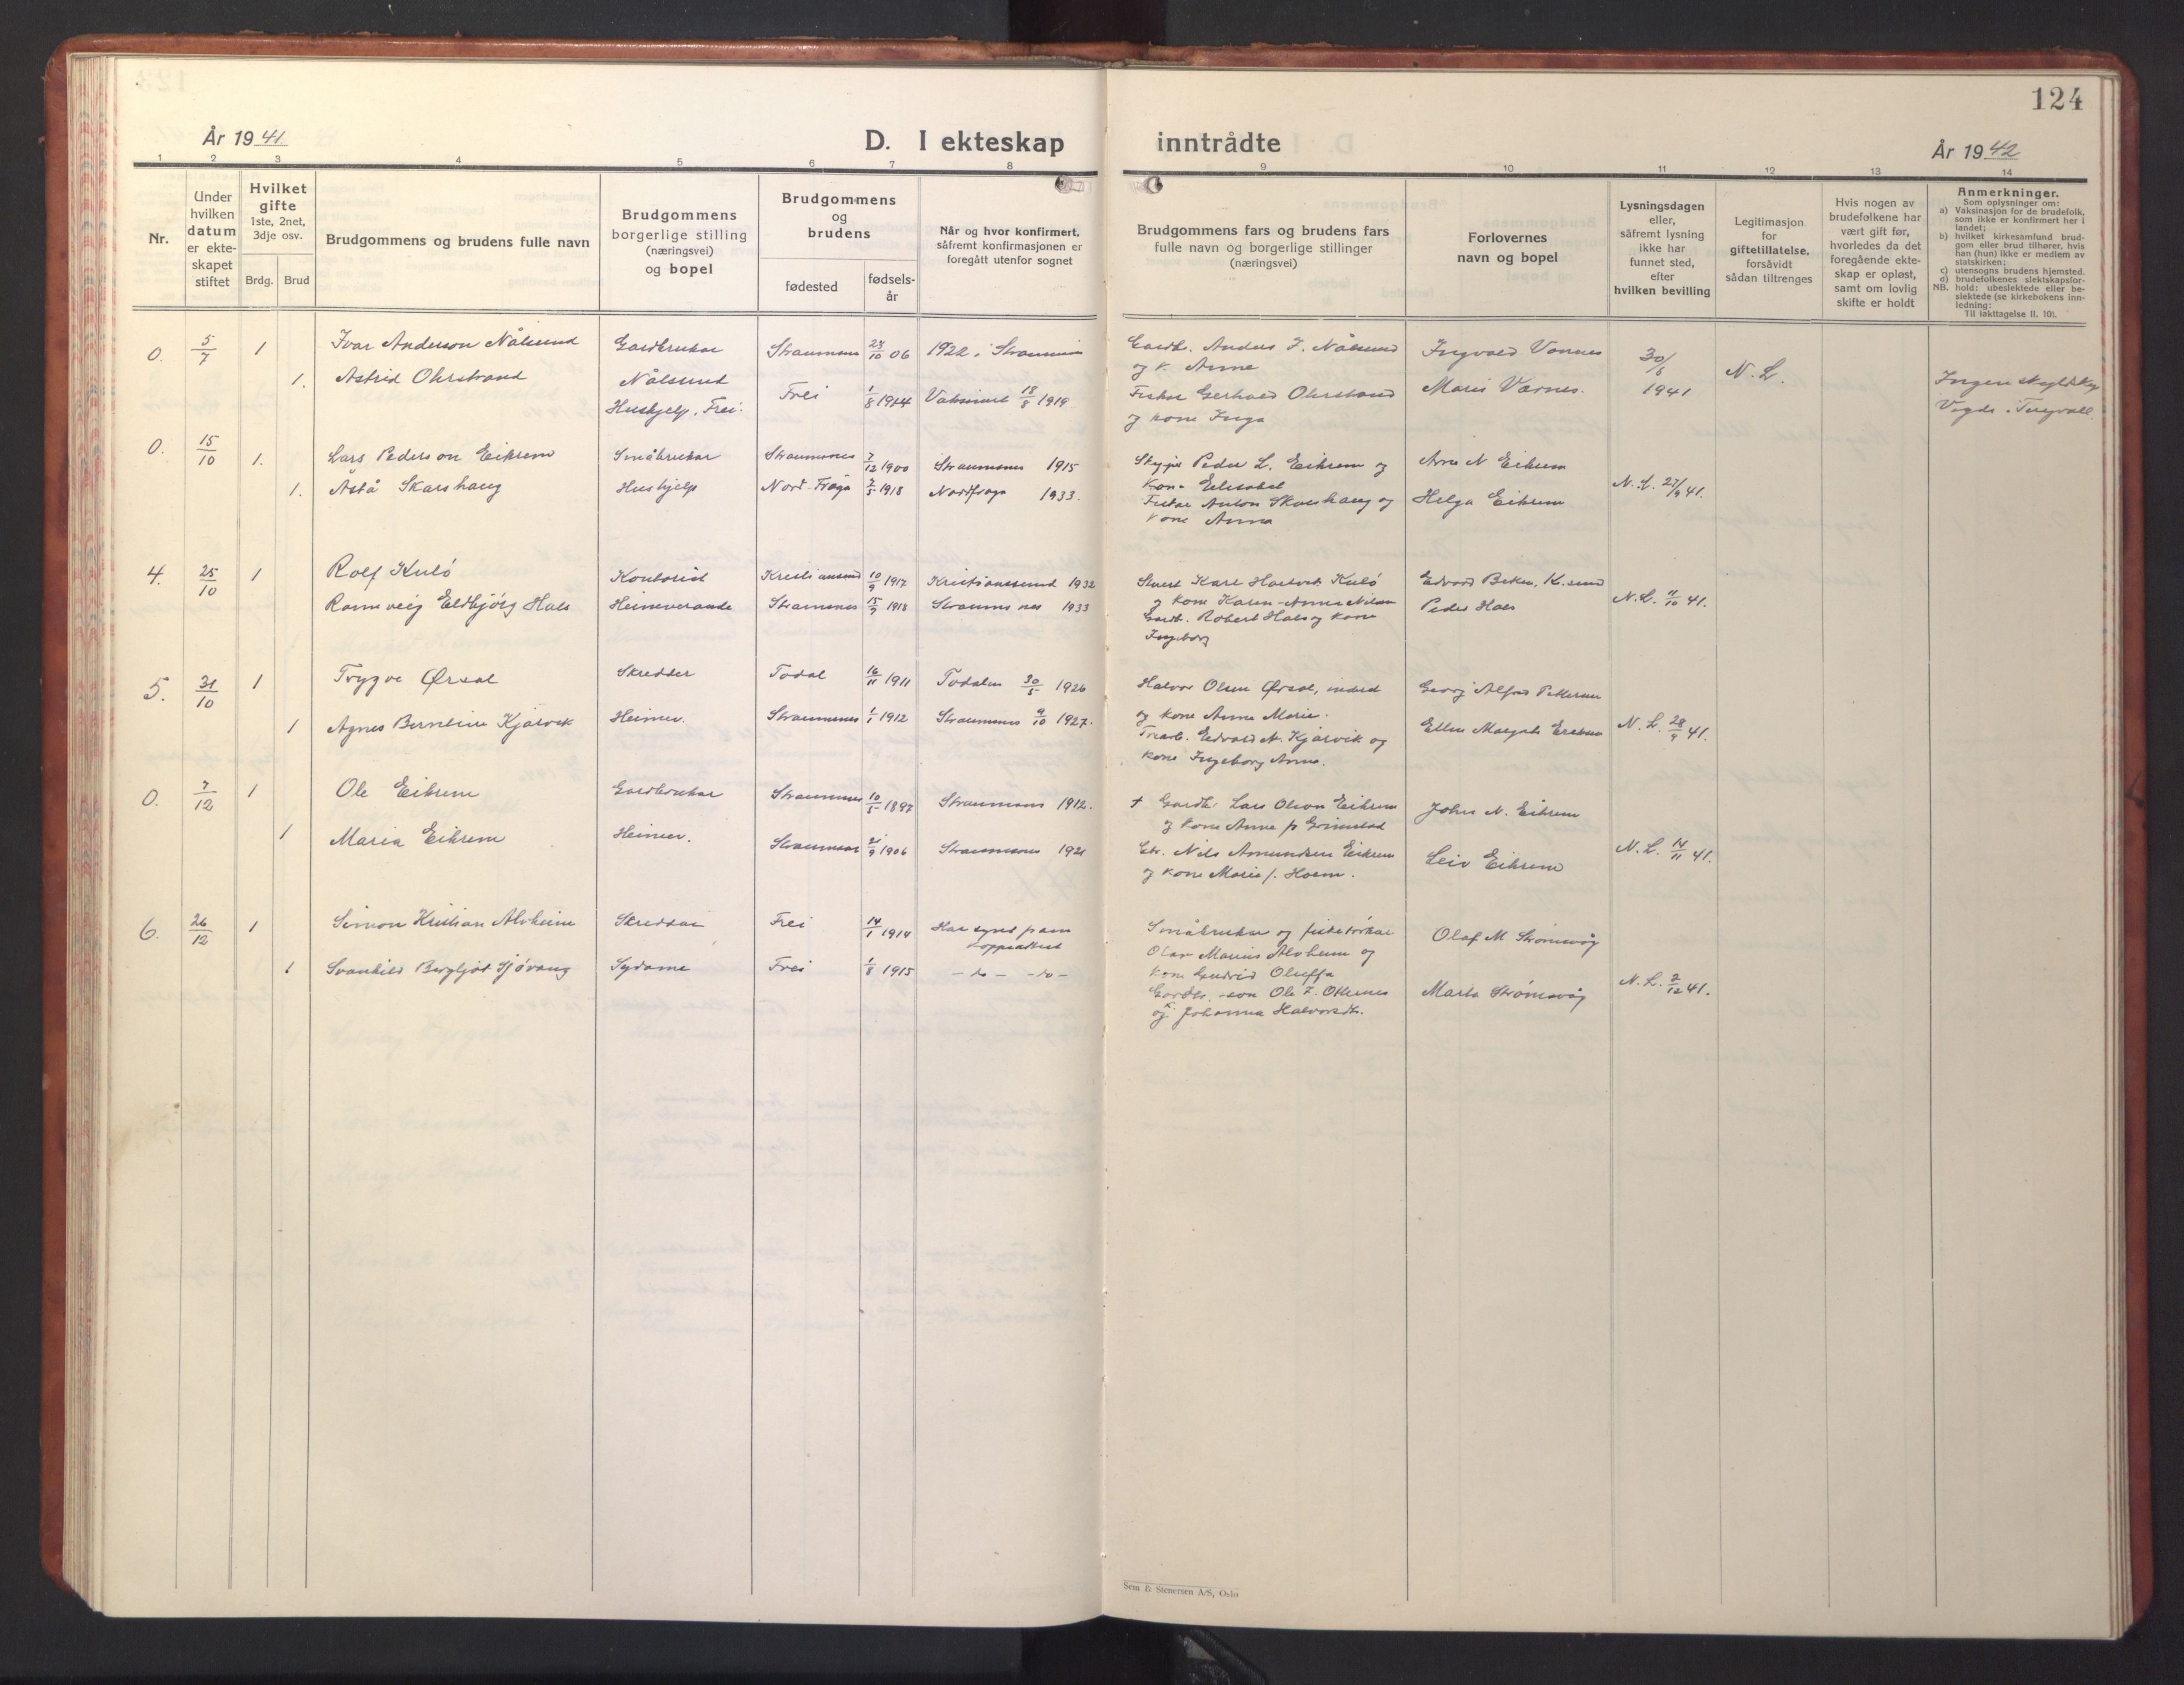 124
År 1941.
D. I ekteskap inntrådte
År 1942
1 2 3 4 5 6 7 8 9 10 11 12 13 14
Nr.
Under
hvilken
datum
er ekte-
skapet
stiftet
Hvilket
gifte
1ste, 2net,
3dje osv.
Brdg. Brud
Brudgommens og brudens fulle navn
Brudgommens
borgerlige stilling
(næringsvei)
og bopel
Brudgommens
og
brudens
fødested
fødsels-
år
Når og hvor konfirmert,
såfremt konfirmasjonen er
foregått utenfor sognet
Brudgommens fars og brudens fars
fulle navn og borgerlige stillinger
(næringsvei)
Forlovernes
navn og bopel
Lysningsdagen
eller,
såfremt lysning
ikke har
funnet sted,
efter
hvilken bevilling
Legitimasjon
for
giftetillatelse,
forsåvidt
sådan tiltrenges
Hvis nogen av
brudefolkene har
vært gift før,
hvorledes da det
foregående ekte-
skap er opløst,
samt om lovlig
skifte er holdt
Anmerkninger.
Som oplysninger om:
a) Vaksinasjon for de brudefolk,
som ikke er konfirmert her i
landet;
b) hvilket kirkesamfund brud-
gom eller brud tilhører, hvis
han (hun) ikke er medlem av
statskirken;
c) utensogns brudens hjemsted.
d) brudefolkenes slektskapsfor-
NB. hold: ubeslektede eller be-
slektede (se kirkebokens inn-
ledning:
Til iakttagelse II. 10).
0. 5/7 1 Ivar Anderson Nålsund Gardbrukar 23/10 06 1922 i
Gardbr. Anders J. Nålsund Ingvald 30/5 1941 N.L.
og k. Anne
1. Astrid Ohrstrand Nålsund Frei 1/8 1914 18/8 1919
Hushjelp, Frei.
Fisker Gerhard Ohrstrand
og kone Inga
Ingen
Vigde i
0. 15/10 1. Lars Pederson Eikrem Småbrukar Straumsnes 7/12 1900 Straumsnes 1915
Peder L. Eikrem og Arne N Eikrem
kone
1. Skarshaug Hushjelp 2/5 1918 1933.
Anton Skarshaug og Helga Eikrem N.L. 27/9 41.
kone Anna
4. 25/10 1 Rolf Kulö Kontorist Kristiansund 10/9 1917 Kristianssund 1932
Karl Kulö Edvard K.sund
og kone Karen-Anna
Eldbjörg Hals Heimeverande Straumsnes 15/9 1918 Straumsnes 1933
Gardb. Robert Hals og kone Peder Hals N.L. 11/10 41.
Ingeborg
5. 31/10 1 Trygve Ørsal Skredder Todal 16/11 1911 Todalen 30/5 1926
Halvor Olsen Ørsal, Georg Alfred Pettersen
og kone Anne Marie.
1 Agnes Kjørsvik Heimev. Straumsnes 1/1 1912 Straumsnes 9/10 1927.
Edvard Kjørsvik og Ellen N.L. 28/9 41.
kone Ingeborg Anna.
0. 7/12 1 Ole Eikrem Gardbrukar Straumsnes 10/5 1897 Straumsnes 1912.
† Gardbr. Lars Olson Eikrem John N. Eikrem
og kone Anne f. Grimstad
1 Maria Eikrem Heimev. Straumsnes 21/9 1906 Straumsnes 1921
Gbr. Nils Amundsen Eikrem Leiv Eikrem N.L. 14/11 41.
og kone Marie f. Hoem.
6. 26/12 1 Simon Kristian Alvheim Skreddar Frei 14/1 1914 Har synt fram
Småbrukar og Olaf M Strömsvåg
Olav Marius Alvheim og
kone Oluffa
1 Svanhild Bergljot Sjövang Sydame Frei 1/8 1915 – do – – do –
Ole Marta Strømsvåg N.L. 2/12 41.
og Johanna Halvorsdtr.
Sem & Stenersen A/S, Oslo